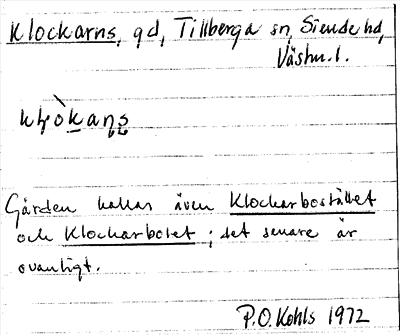 Klockarns, gd, Tillberga sn, Siende hd,
Västm. l.
klò̀kans
Gården kallas även Klockarbostället
och Klockarbolet; det senare är
ovanligt.
P.O. Kohls 1972